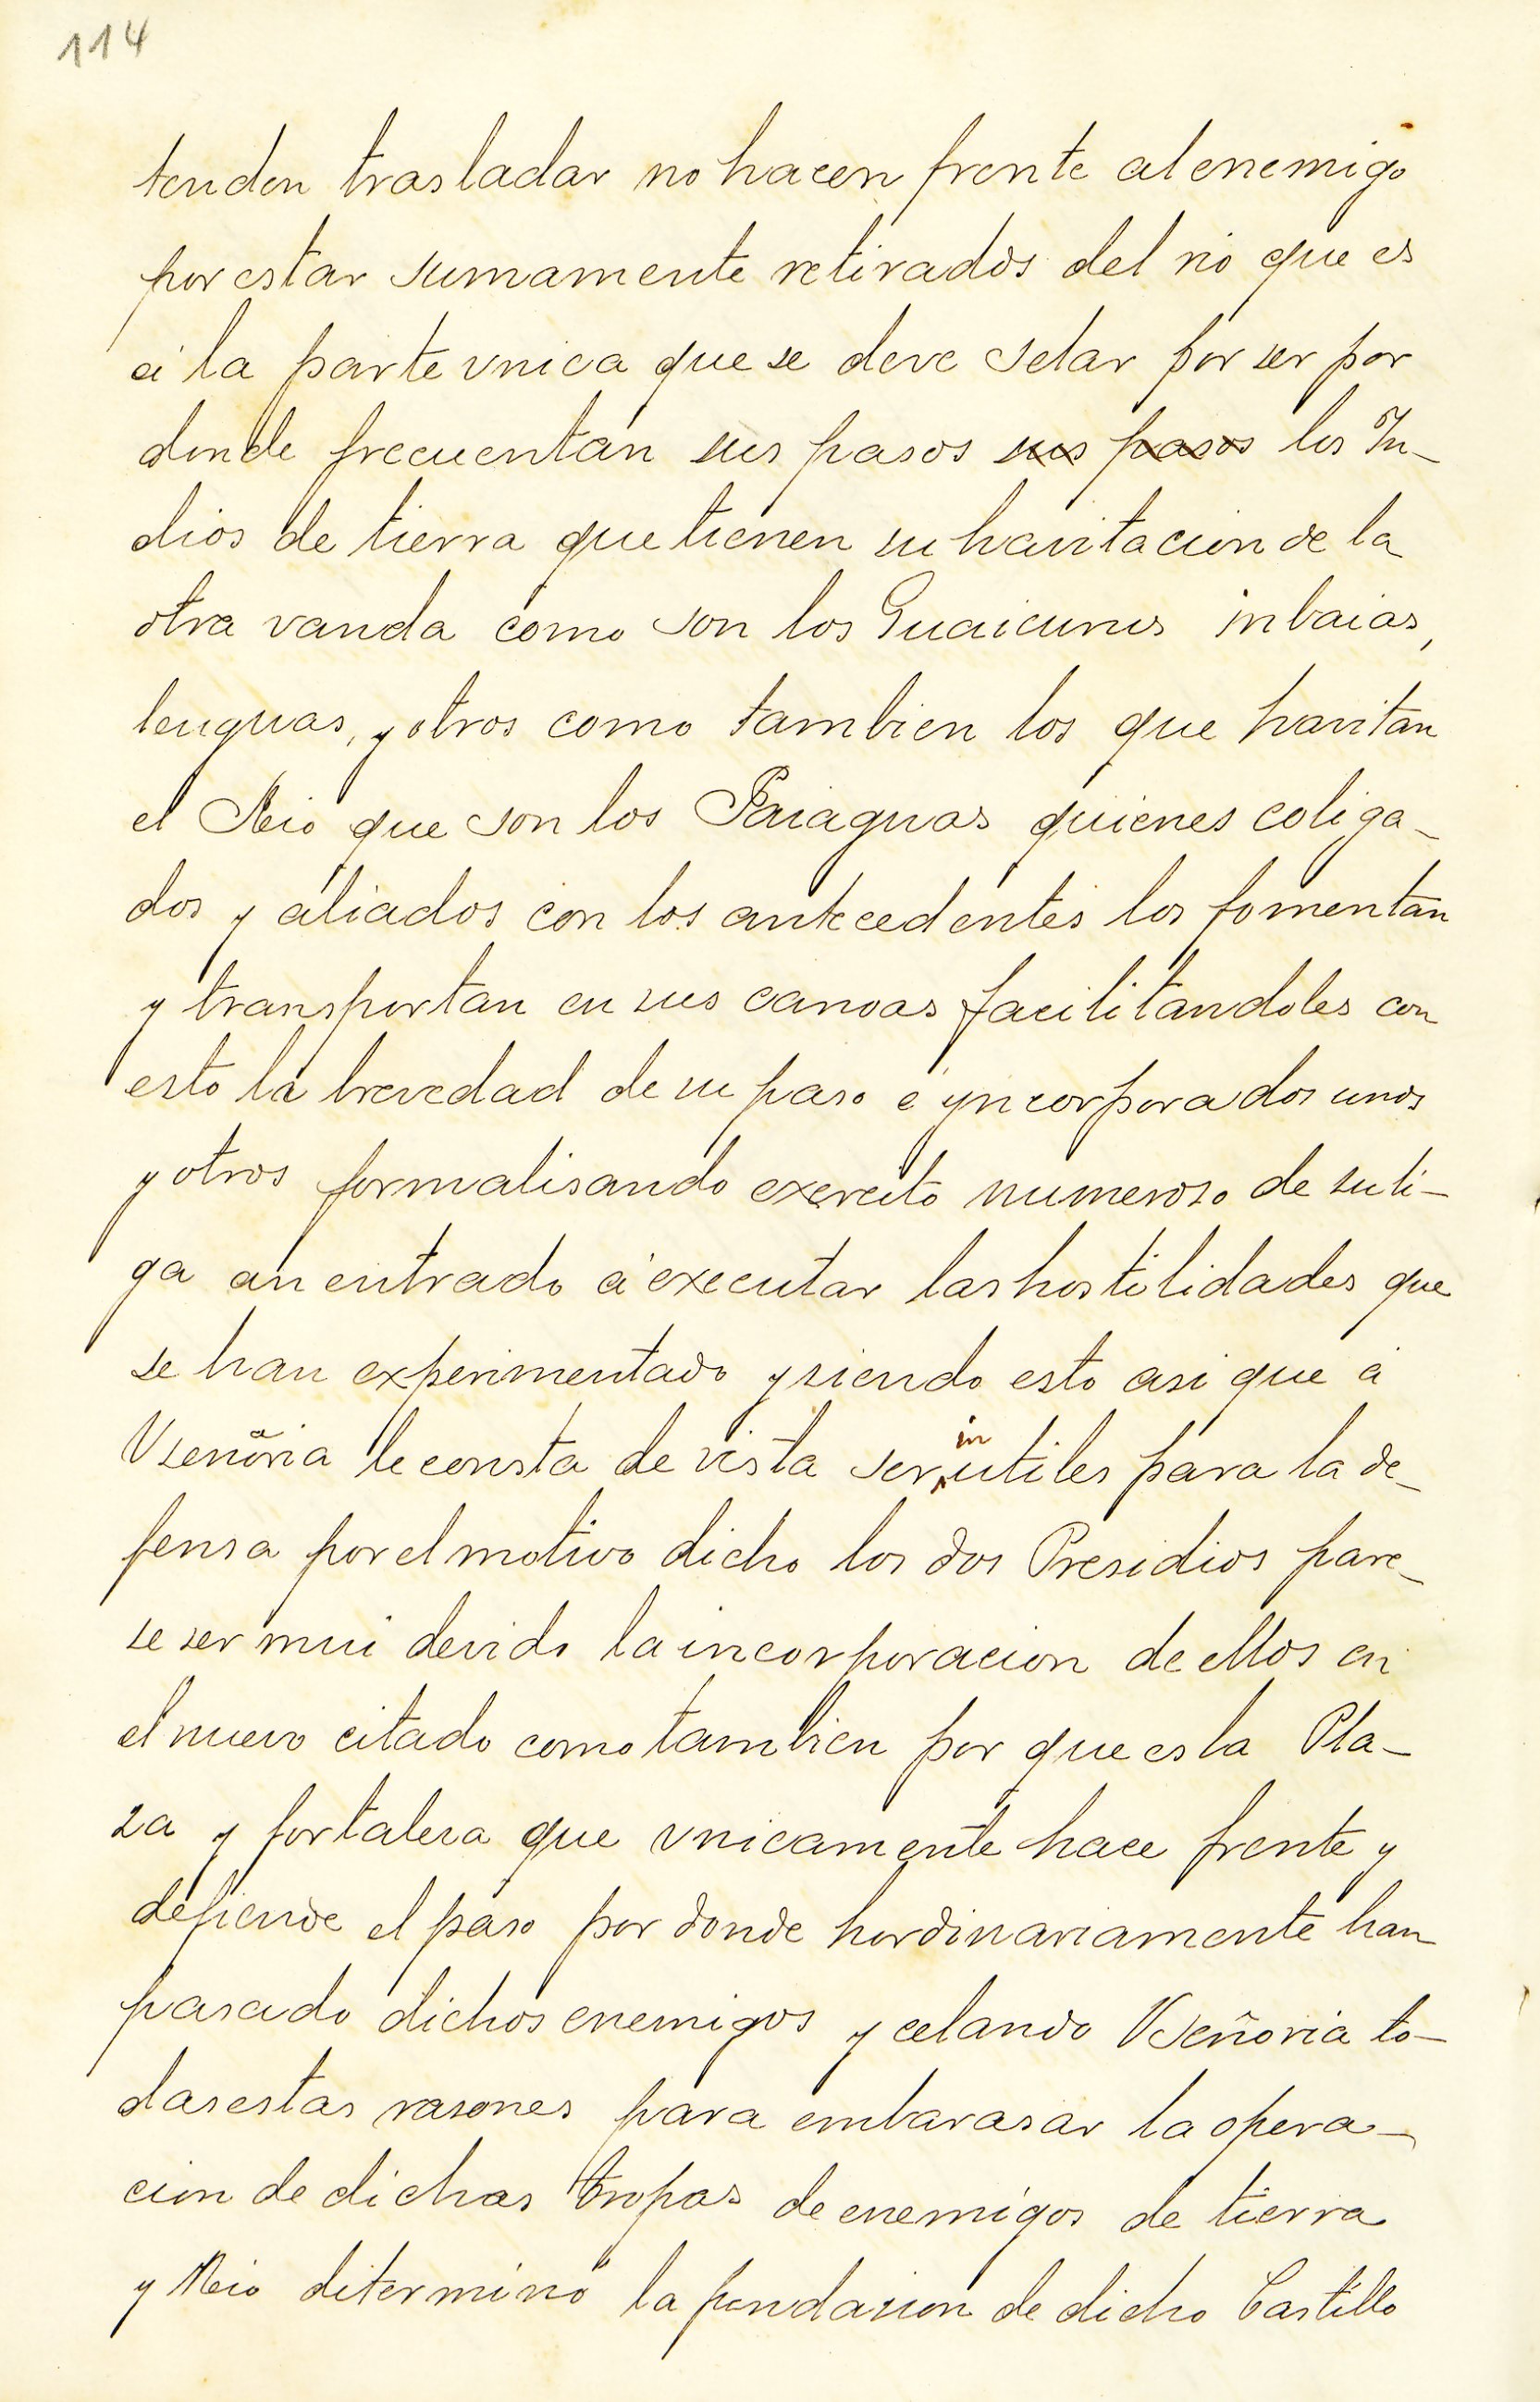 114
tenden trasladar no hacen frente al enemigo
por estar sumamente retirados del rio que es
á la parte vnica que se deve selar por ser por
donde frecuentan sus pasos sus pasos los In-
dios de tierra que tienen su havitacion de la
otra vanda como son los Guaicurus inbaias,
lenguas, y otros como tambien los que havitan
el Rio que son los Paiaguas quienes coliga-
dos y aliados con los antecedentes los fomentan
y transportan en sus canoas facilitandoles con
esto la brevedad de su paso é yncorporados unos
y otros formalisando exercito numeroso de su li-
ga an entrado á executar las hostilidades que
se han experimentado y siendo esto asi que á
Vseñoria le consta de vista ser inutiles para la de-
fensa por el motivo dicho los dos Presidios pare-
se ser mui devido la incorporacion de ellos en
el nuevo citado como tambien por que es la Pla-
za y fortalesa que vnicamente hace frente y
defiende el paso por donde hordinariamente han
pasado dichos enemigos y celando Vseñoria to-
das estas rasones para embarasar la opera-
cion de dichas tropas de enemigos de tierra
y Rio diterminó la fundasion de dicho Castillo